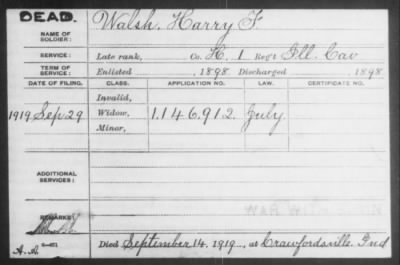 DEAD.
NAME OF SOLDIER: Walsh, Harry F
SERVICE: Late rank, Co. H, 1 Reg't Ill. Cav
TERM OF SERVICE: Enlisted 1898 Discharged 1898
DATE OF FILING. CLASS. APPLICATION NO. LAW. CERTIFICATE NO.
Invalid,
1919 Sep 29 Widow, 1.146.912 July
Minor,
ADDITIONAL SERVICES:
REMARKS:
Died September 14, 1919, at Crawfordsville, Ind